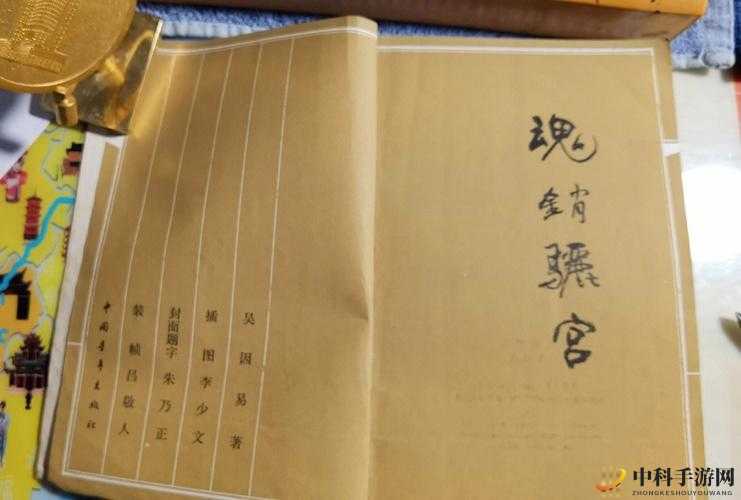 魂销骊宫
吴因易 著
插图 李少文
封面题字 朱乃正
装帧 吕敬人
中国青年出版社
中科手游网
ZHONGKESHOUYOUWANG